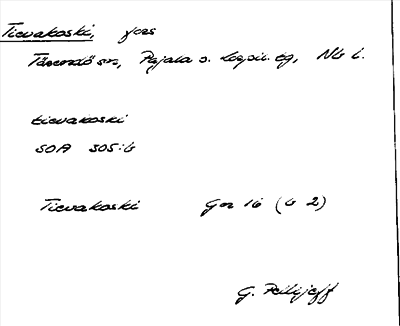 Tievakoski, fors
Tärendö sn, Pajala o. Korpil. tg, Nb l.
tievakoski
SOA 305:6
Tievakoski Gr 16 (G 2)
G. Pellijeff